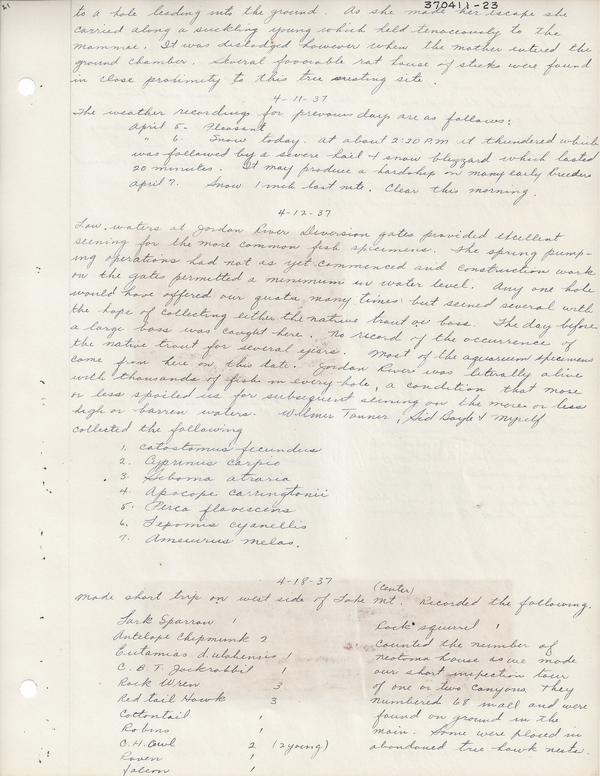 21
370411-23
to a hole leading into the ground. As she made her escape she
carried along a suckling young which held tenaceously to the
mammae. It was dislodged however when the mother entered the
ground chamber. Several favorable rat house of sticks were found
in close proximity to this tree nesting site.
4-11-37
The weather recordings for previous days are as follows:
April 5- Pleasant
" 6. Snow today. at about 2:30 P.M. it thundered which
was followed by a severe hail & snow blizzard which lasted
20 minutes. It may produce a hardship on many early breeders
April 7. Snow 1 inch last nite. Clear this morning.
4-12-37
Low waters at Jordan River Diversion gates provided excellent
seining for the more common fish specimens. The spring pump-
ing operations had not as yet commenced and construction work
on the gates permitted a minimum in water level. Any one hole
would have offered our quota many times but seined several with
the hope of collecting either the native trout or bass. The day before
a large bass was caught here. No record of the occurrence of
the native trout for several years. Most of the aquarium specimens
come from here on this date. Jordan River was literally alive
with thousands of fish in every hole, a condition that more
or less spoiled us for subsequent seining on the more or less
high or barren waters. Wilmer Tanner, Sid Boyle & myself
collected the following
1. Catostomus fecundus
2. Cyprinus carpio
3. Siboma atraria
4. Apocope carringtonii
5. Perca flavescens
6. Lepomis cyanellis
7. Ameiurus melas.
4-18-37
(Center)
Made short trip on west side of Lake Mt. Recorded the following.
Lark Sparrow 1
Antelope Chipmunk 2
Eutamias d. utahensis 1
C. B. T. Jackrabbit 1
Rock Wren 3
Red tail Hawk 3
Cottontail 1
Robins 1
G.H. Owl 2 (2 young)
Raven 1
Falcon 1
Rock squirrel 1
Counted the number of
neotoma house as we made
our short inspection tour
of one or two canyons. They
numbered 68 in all and were
found on ground in the
main. Some were placed in
abandoned tree hawk nests.